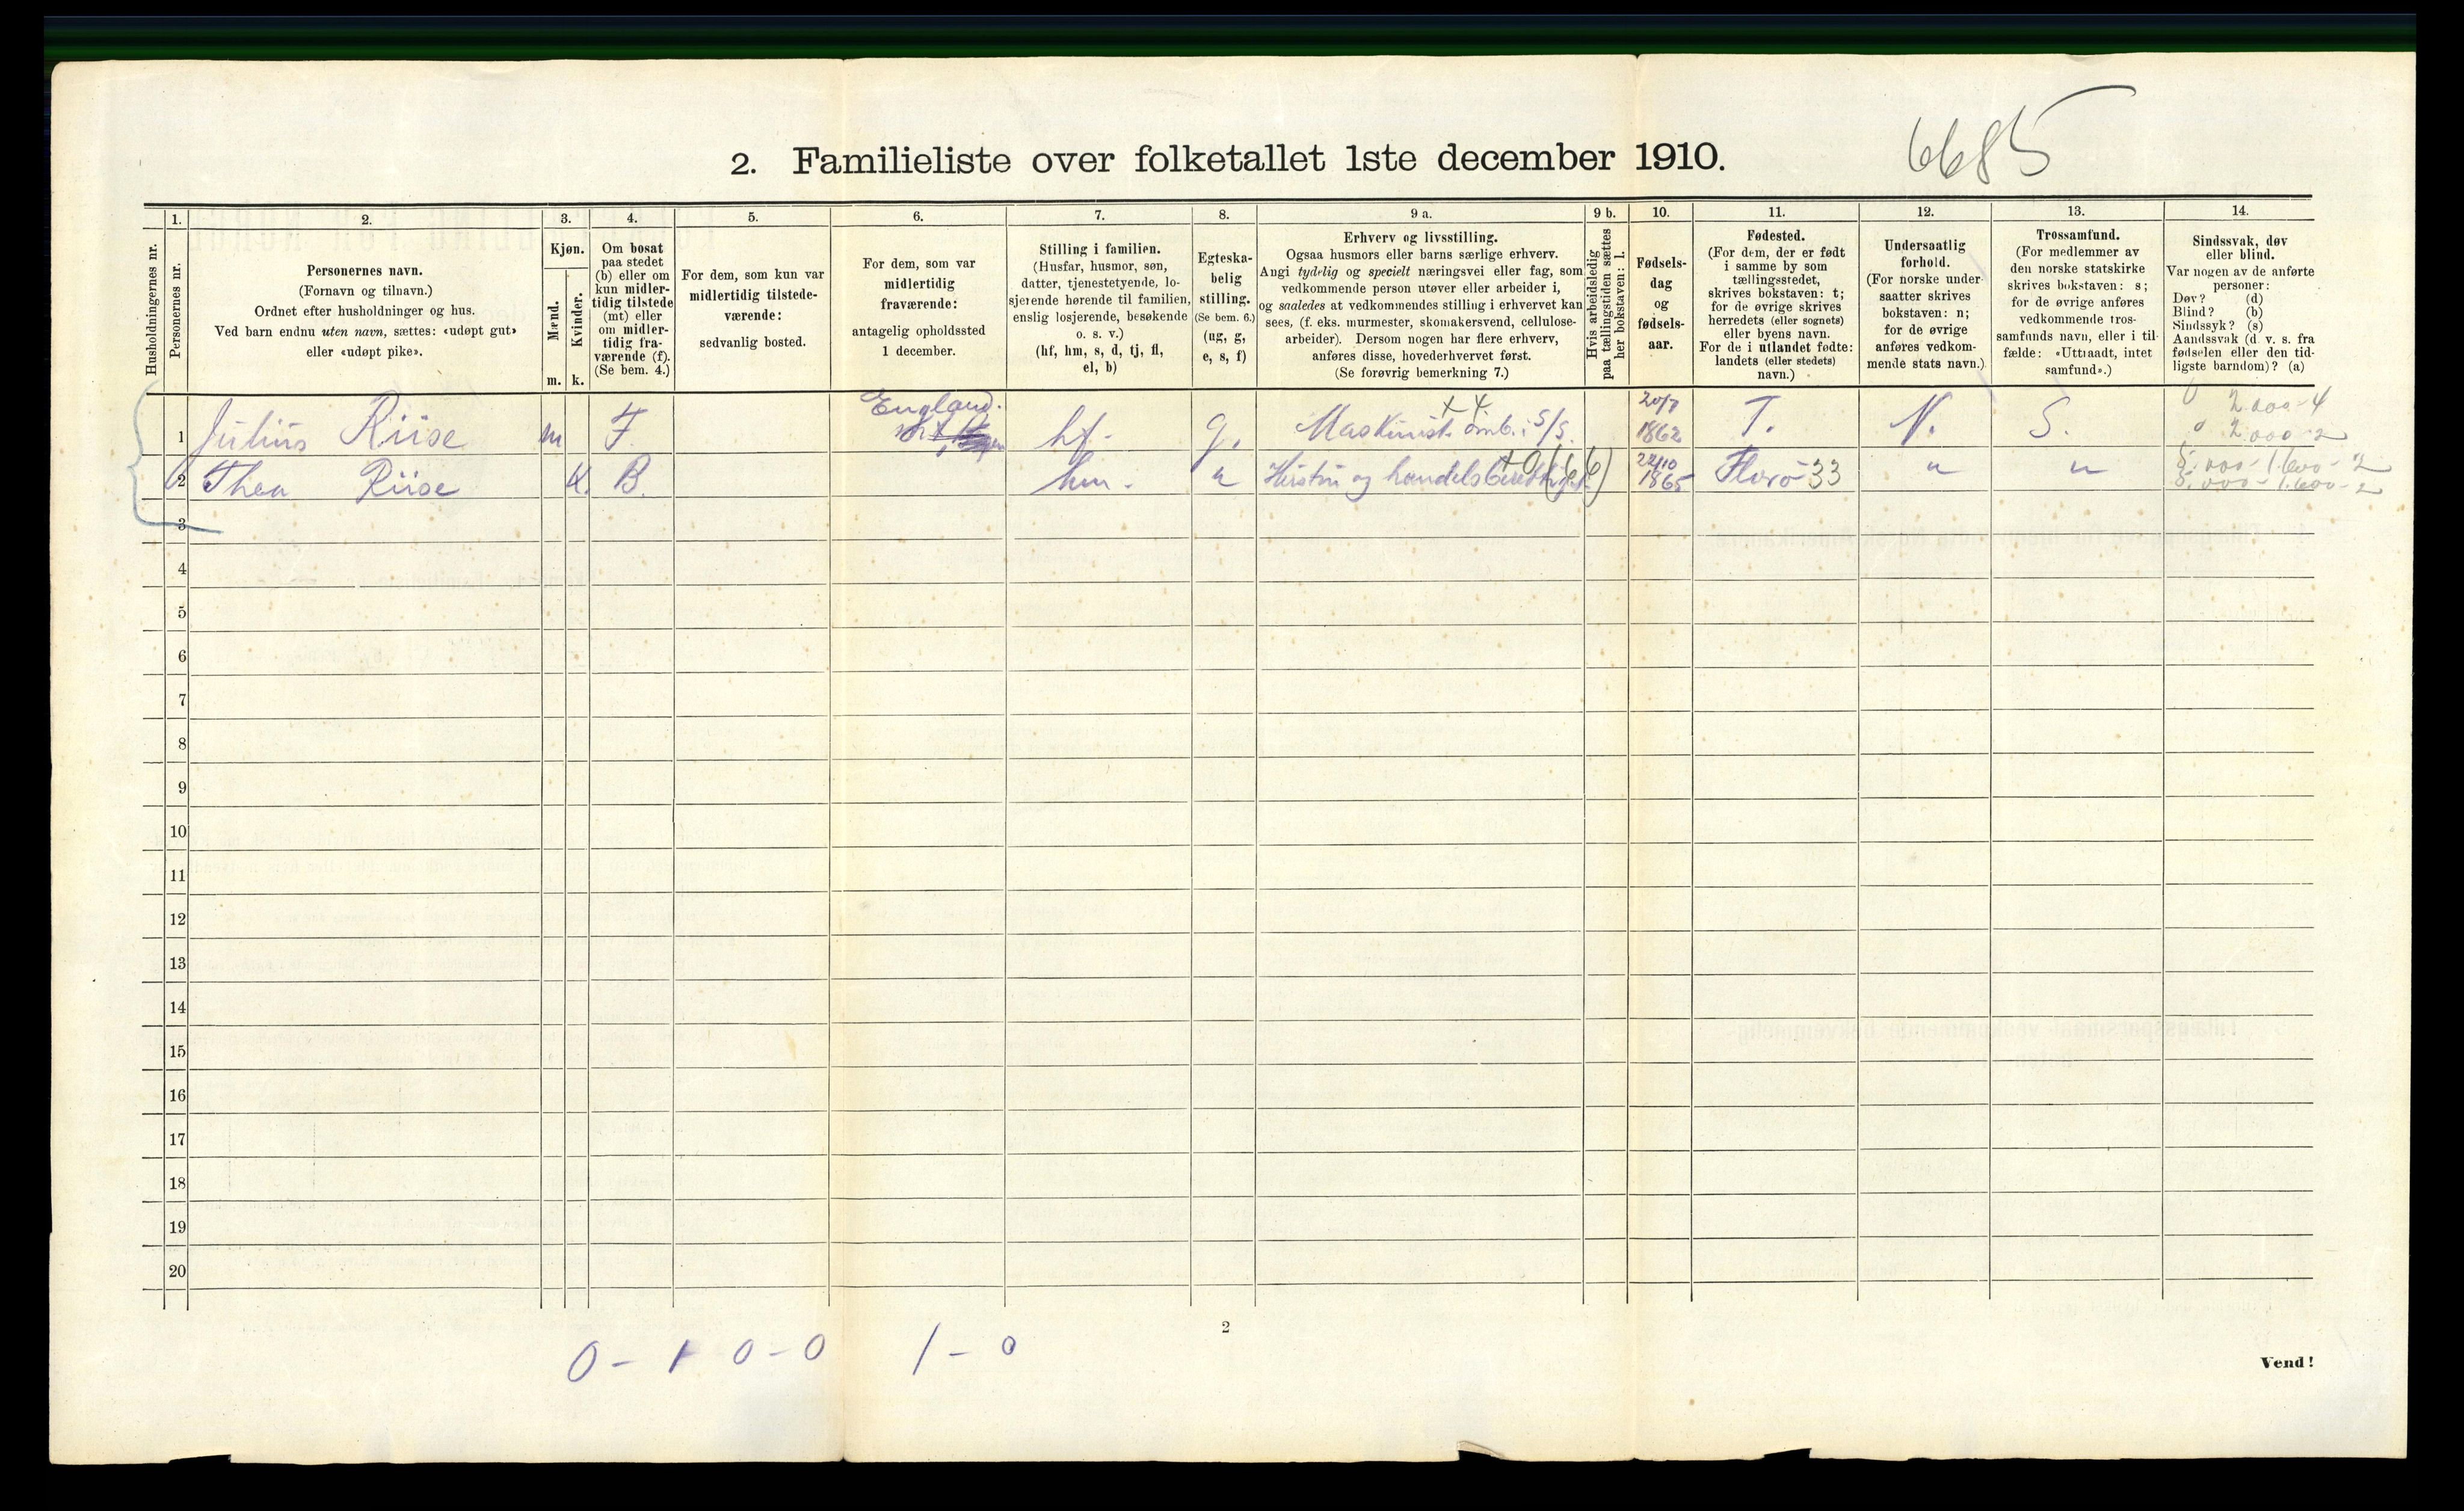 6685
2. Familieliste over folketallet 1ste december 1910.
Husholdningernes nr.
1.
Personernes nr.
2.
Personernes navn.
(Fornavn og tilnavn.)
Ordnet efter husholdninger og hus.
Ved barn endnu uten navn, sættes: «udøpt gut»
eller «udøpt pike».
3.
Kjøn.
Mænd.
Kvinder.
m. k.
4.
Om bosat
paa stedet
(b) eller om
kun midler-
tidig tilstede
(mt) eller
om midler-
tidig fra-
værende (f).
(Se bem. 4.)
5.
For dem, som kun var
midlertidig tilstede-
værende:
sedvanlig bosted.
6.
For dem, som var
midlertidig
fraværende:
antagelig opholdssted
1 december.
7.
Stilling i familien.
(Husfar, husmor, søn,
datter, tjenestetyende, lo-
sjerende hørende til familien,
enslig losjerende, besøkende
o. s. v.)
(hf, hm, s, d, tj, fl,
el, b)
8.
Egteska-
belig
stilling.
(Se bem. 6.)
(ug, g,
e, s, f)
9 a.
Erhverv og livsstilling.
Ogsaa husmors eller barns særlige erhverv.
Angi tydelig og specielt næringsvei eller fag, som
vedkommende person utøver eller arbeider i,
og saaledes at vedkommendes stilling i erhvervet kan
sees, (f. eks. murmester, skomakersvend, cellulose-
arbeider). Dersom nogen har flere erhverv,
anføres disse, hovederhvervet først.
(Se forøvrig bemerkning 7.)
9 b.
Hvis arbeidsledig
paa tællingstiden sættes
her bokstaven: l.
10.
Fødsels-
dag
og
fødsels-
aar.
11.
Fødested.
(For dem, der er født
i samme by som
tællingsstedet,
skrives bokstaven: t;
for de øvrige skrives
herredets (eller sognets)
eller byens navn.
For de i utlandet fødte:
landets (eller stedets)
navn.)
12.
Undersaatlig
forhold.
(For norske under-
saatter skrives
bokstaven: n;
for de øvrige
anføres vedkom-
mende stats navn.)
13.
Trossamfund.
(For medlemmer av
den norske statskirke
skrives bokstaven: s;
for de øvrige anføres
vedkommende tros-
samfunds navn, eller i til-
fælde: «Uttraadt, intet
samfund».)
14.
Sindssvak, døv
eller blind.
Var nogen av de anførte
personer:
Døv? (d)
Blind? (b)
Sindssyk? (s)
Aandssvak (d. v. s. fra
fødselen eller den tid-
ligste barndom)? (a)
1 Julius Riise m F. England. hf. g. Maskinist omb. i S/S. x 4 20/7 1862 T. N. S. 0 2.000-4
0 2.000-2
2 Thea Riise K. B. hm. " (66) 22/10 1865 Florö 33 " " 5.000-1.600-2
5.000-1.600-2
3
4
5
6
7
8
9
10
11
12
13
14
15
16
17
18
19
20
0 - 1 0 - 0 1 - 0
2
Vend!